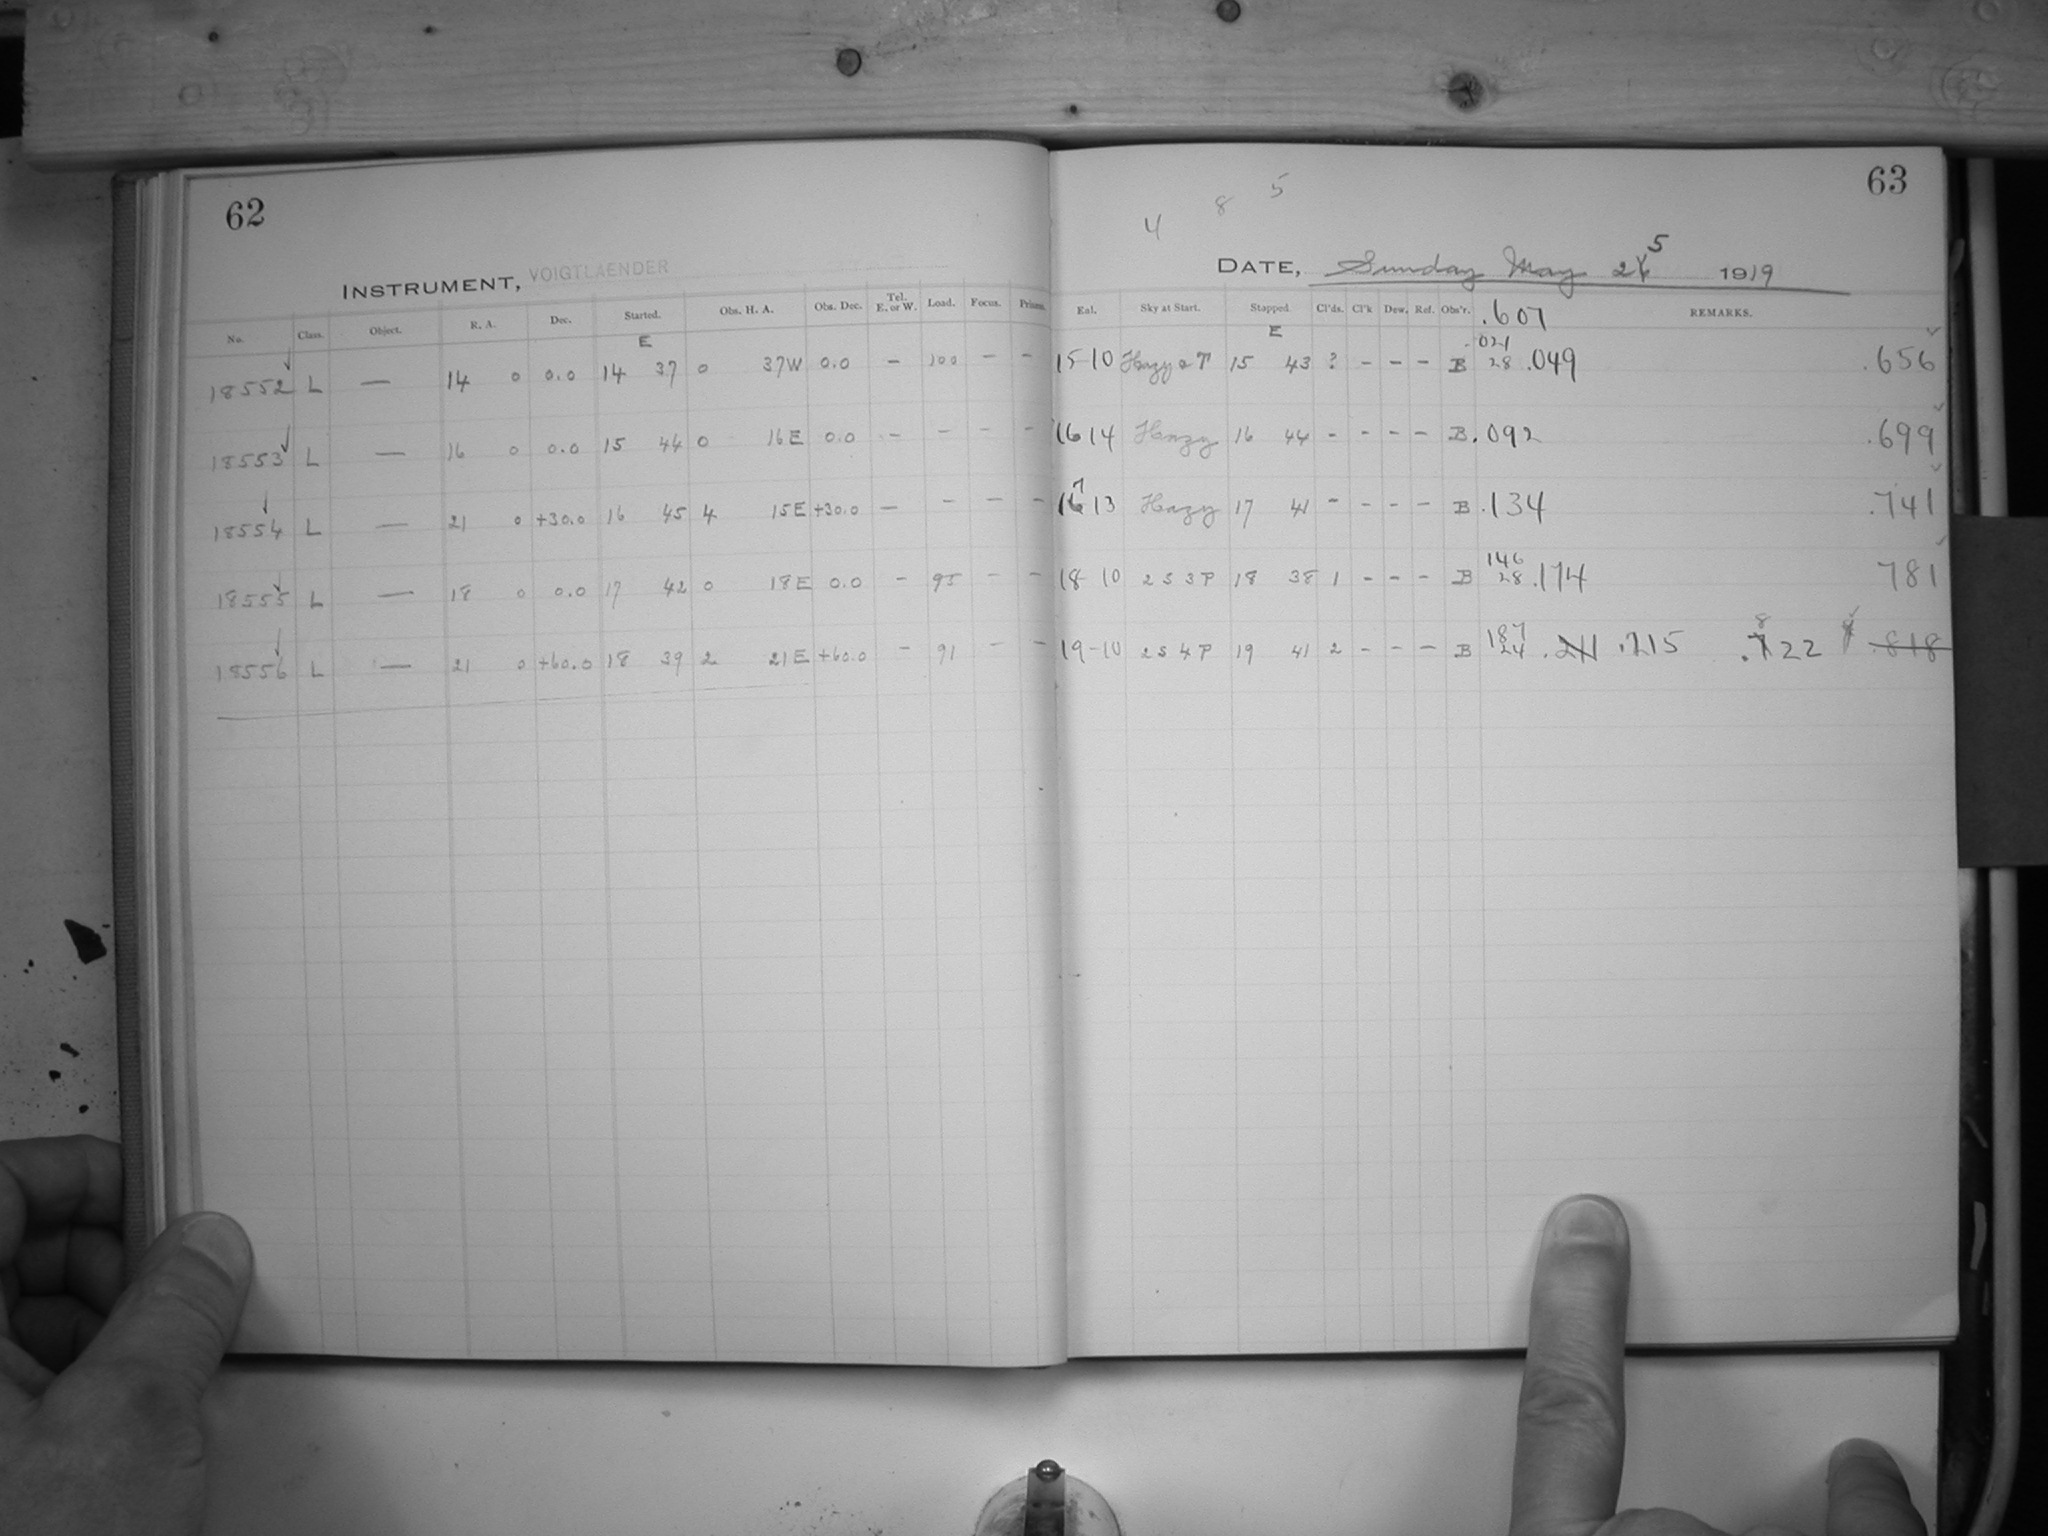 62
INSTRUMENT, VOIGTLAENDER
No. Class. Object. R. A. Dec. Started. Obs. H. A. Obs. Dec. Tel. E. or W. Load. Focus. Prism.
E
18552 L — 14 0 0.0 14 37 0 37W 0.0 - 100 - -
18553 L — 16 0 0.0 15 44 0 16E 0.0 - - - -
18554 L — 21 0 +30.0 16 45 4 15E +30.0 - - - -
18555 L — 18 0 0.0 17 42 0 18E 0.0 - 95 - -
18556 L — 21 0 +60.0 18 39 2 21E +60.0 - 91 - -
63
4 8 5
DATE, Sunday May 2 5 1919
Exl. Sky at Start. Stopped. Cl'ds. Cl'k Dew. Ref. Obs'r. REMARKS.
E .607
15-10 Hazy 15 43 ? - - - B .021 28 .049 .656
16 14 Hazy 16 44 - - - - B .092 .699
7
16 13 Hazy 17 41 - - - - B .134 .741
18-10 2 S 3 P 18 38 1 - - - B 146 28 .174 781
19-10 2 S 4 P 19 41 2 - - - B 187 24 .211 .215 8 .722 .818